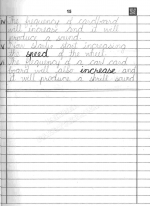 The frequency of cardboard
will increase and it will
produce a sound.
Now slowly start increasing
the speed of the wheel.
The frequency of a card
board will also increase and
it will produce a shrill sound